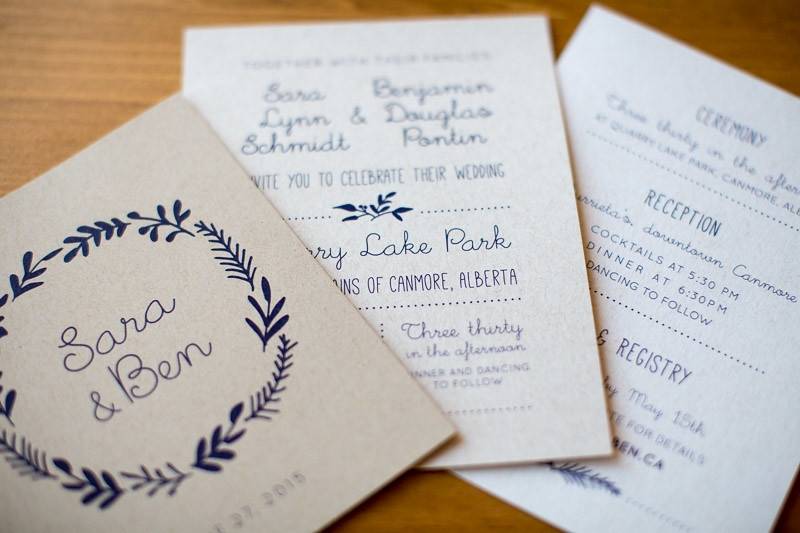 Sara
& Ben
27, 2015
TOGETHER WITH THEIR FAMILIES
Sara Benjamin
Lynn & Douglas
Schmidt Pontin
INVITE YOU TO CELEBRATE THEIR WEDDING
Lake Park
OF CANMORE, ALBERTA
Three thirty
in the afternoon
DINNER AND DANCING
TO FOLLOW
CEREMONY
Three thirty in the
AT QUARRY LAKE PARK, CANMORE,
RECEPTION
downtown Canmore
COCKTAILS AT 5:30 PM
DINNER AT 6:30PM
DANCING TO FOLLOW
& REGISTRY
by May 15th
FOR DETAILS
BEN.CA